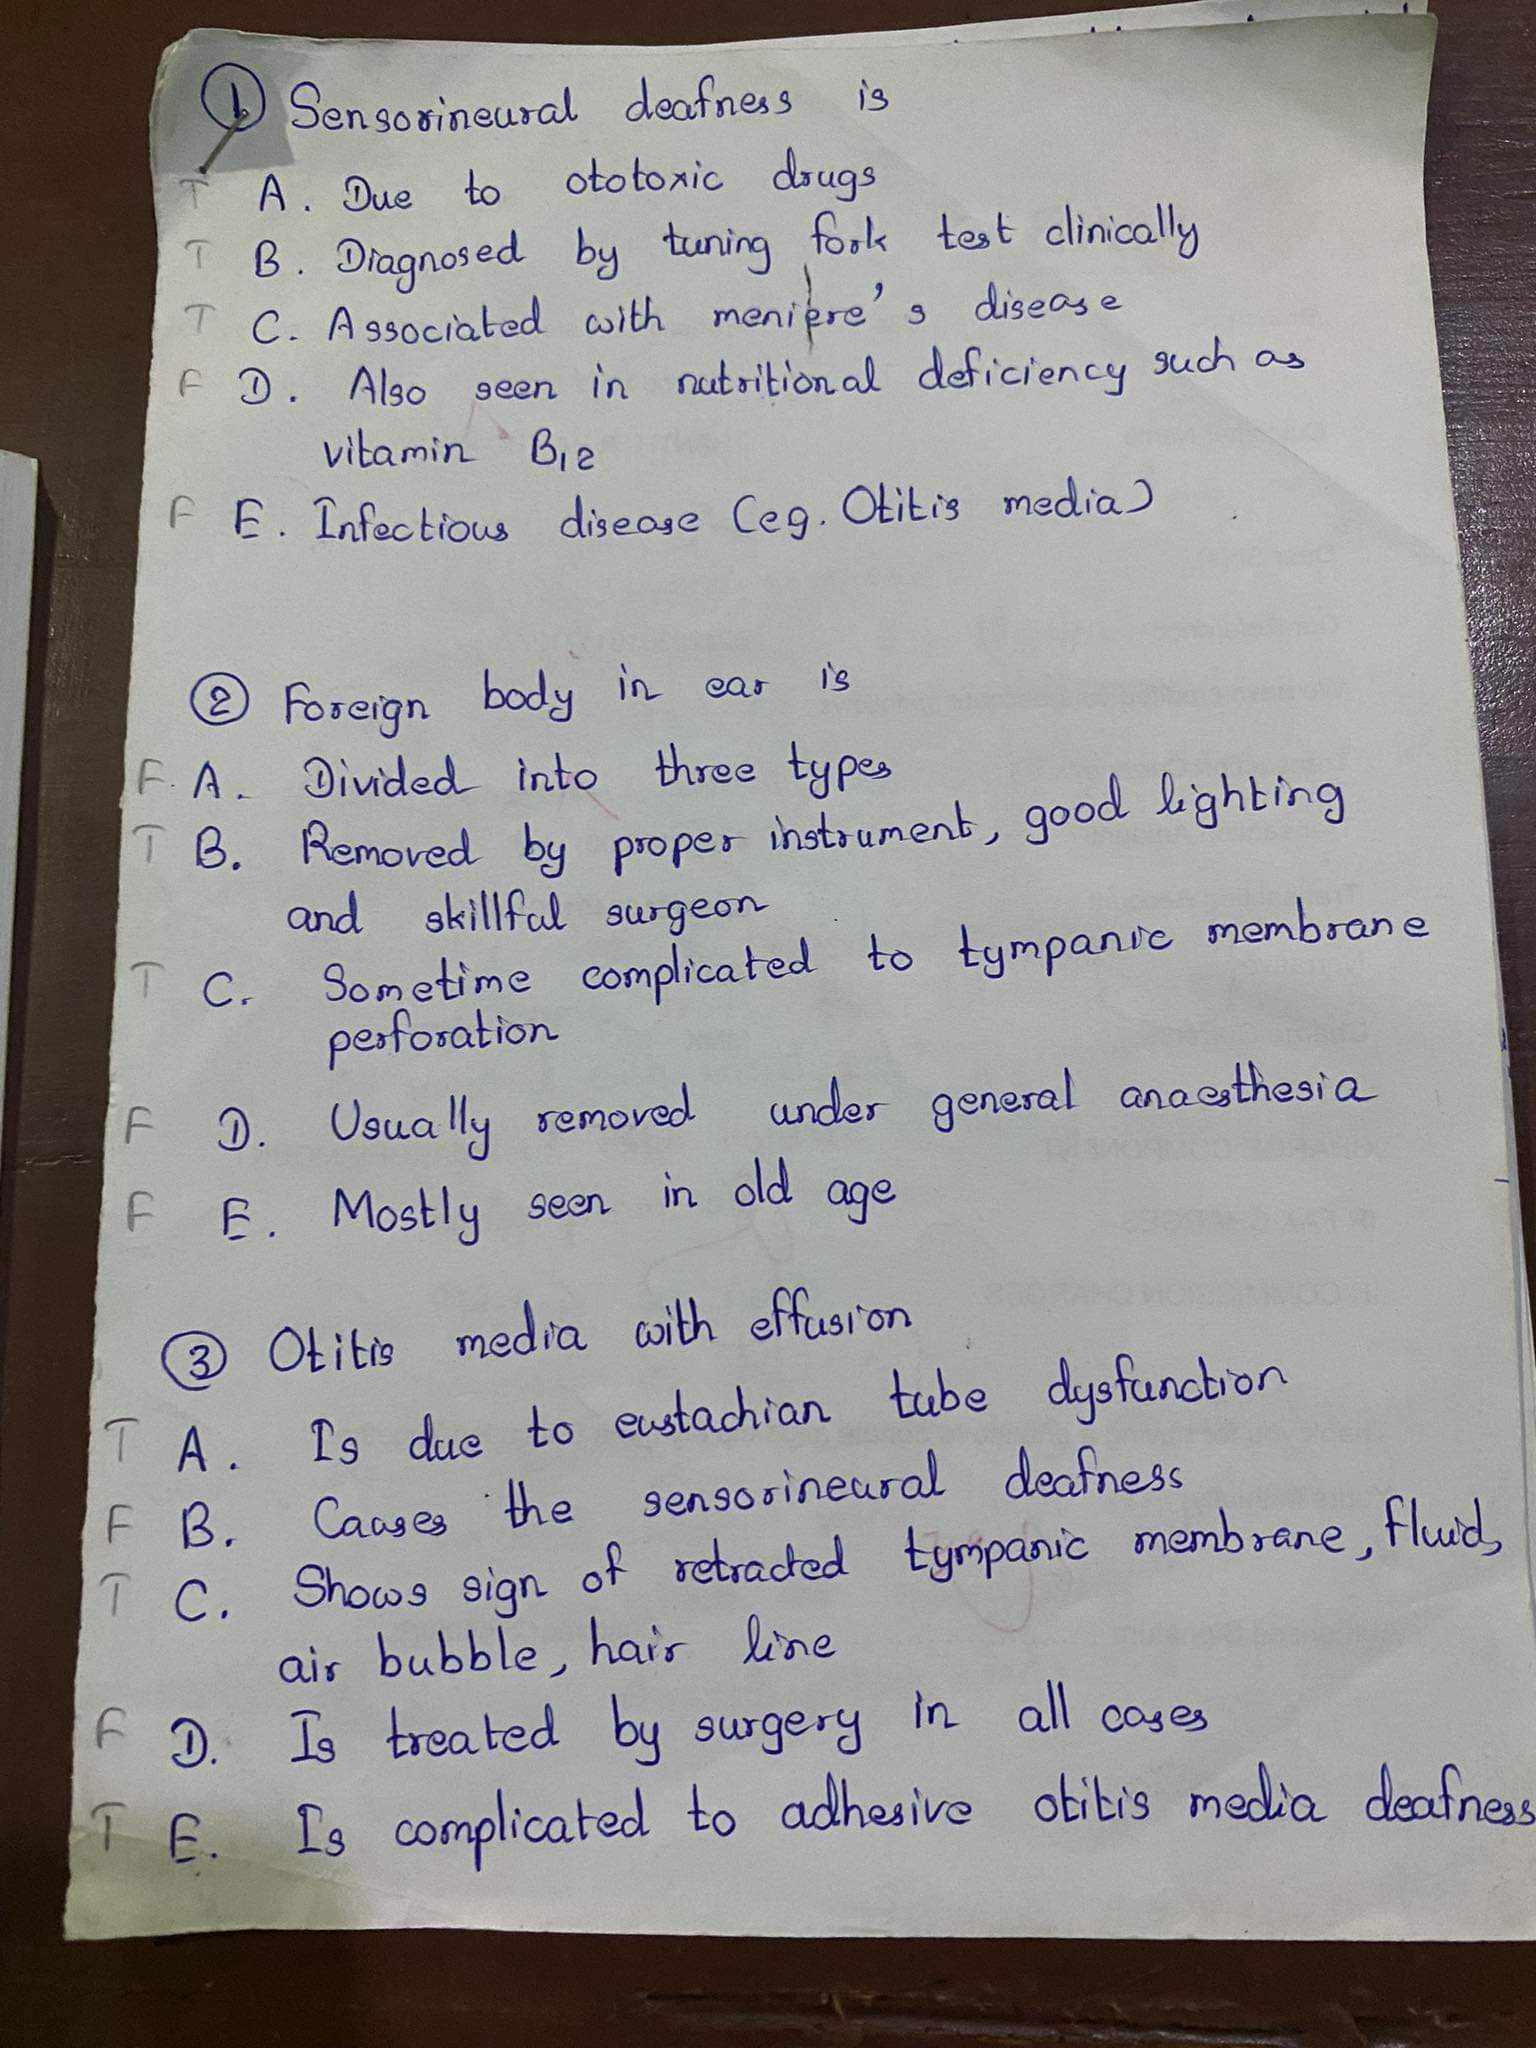 ① Sensorineural deafness is
T A. Due to ototoxic drugs
T B. Diagnosed by tuning fork test clinically
T C. Associated with meniere's disease
F D. Also seen in nutritional deficiency such as
vitamin B12
F E. Infectious disease (eg. Otitis media)
② Foreign body in ear is
F. A. Divided into three types
T B. Removed by proper instrument, good lighting
and skillful surgeon
T C. Sometime complicated to tympanic membrane
perforation
F D. Usually removed under general anaesthesia
F E. Mostly seen in old age
③ Otitis media with effusion
T A. Is due to eustachian tube dysfunction
F B. Causes the sensorineural deafness
T C. Shows sign of retracted tympanic membrane, fluid,
air bubble, hair line
F D. Is treated by surgery in all cases
T E. Is complicated to adhesive otitis media deafness